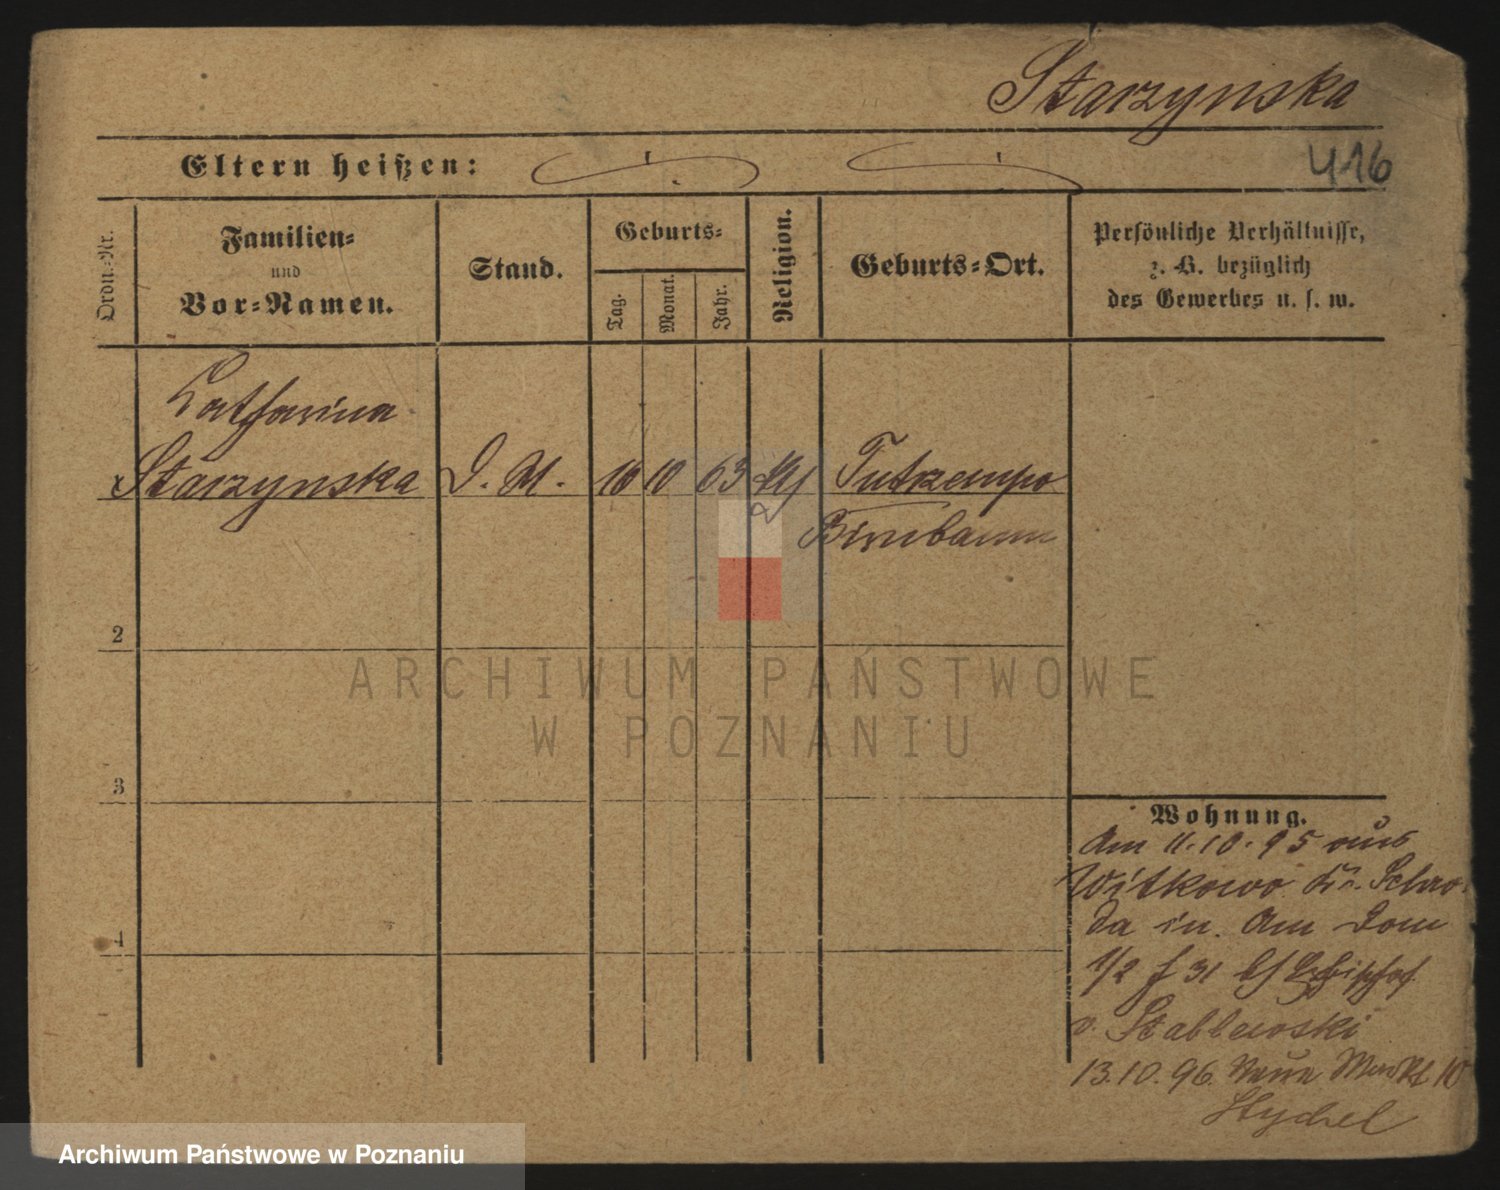 Starzynska
Eltern heißen:
416
Ordn.-Nr.
Familien=
und
Vor=Namen.
Stand.
Geburts=
Tag.
Monat.
Jahr.
Religion.
Geburts=Ort.
Persönliche Verhältnisse,
z. B. bezüglich
des Gewerbes u. s. w.
Catharina
Starzynska D. M. 16 10 63
Birnbaum
2
3
4
Wohnung.
Am 11.10.95 aus
Witkowo Kr. Schro-
da in. Am Dom
1/2 f 31 bf Erzbischof
v. Stablewski
13.10.96. Neue Markt 10
Stychel
ARCHIWUM PAŃSTWOWE
W POZNANIU
Archiwum Państwowe w Poznaniu